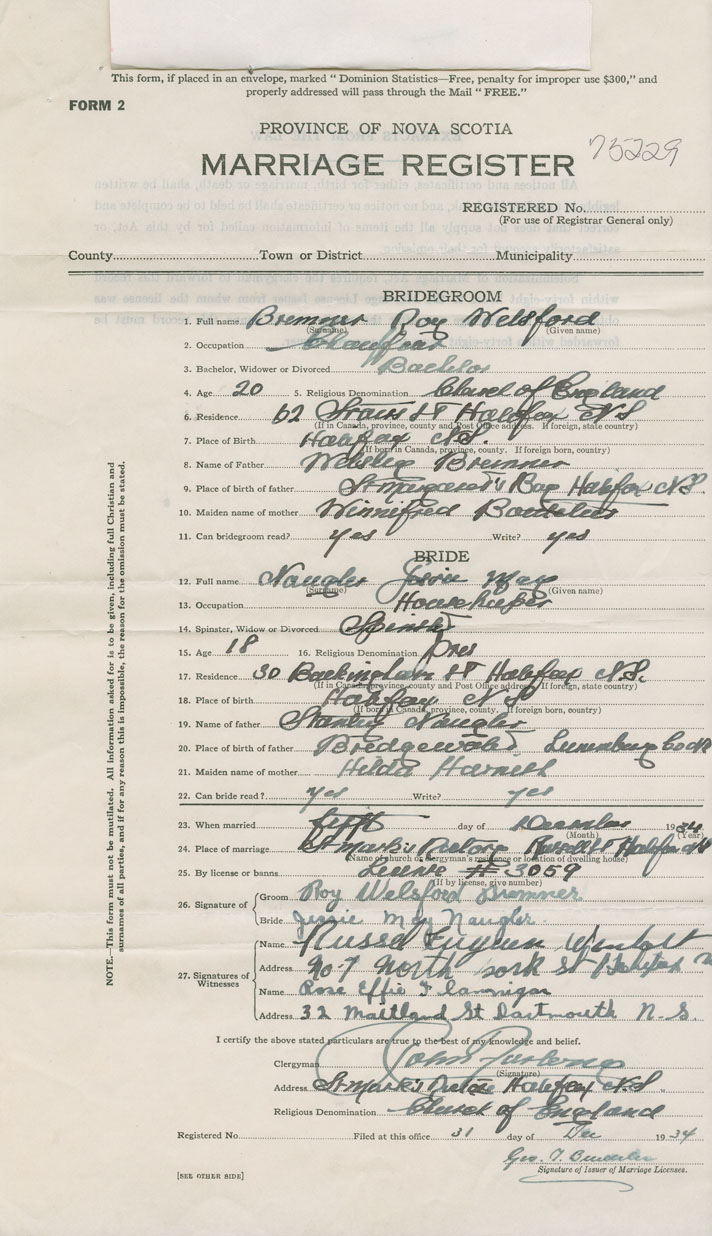 This form, if placed in an envelope, marked "Dominion Statistics—Free, penalty for improper use $300," and
properly addressed will pass through the Mail "FREE."
FORM 2
PROVINCE OF NOVA SCOTIA
75229
MARRIAGE REGISTER
REGISTERED No.
(For use of Registrar General only)
County Town or District Municipality
BRIDEGROOM
1. Full name Bremner Roy Welsford
(Surname) (Given name)
2. Occupation Chauffeur
3. Bachelor, Widower or Divorced Bachelor
4. Age 20 5. Religious Denomination Church of England
6. Residence 62 St Halifax N.S.
(If in Canada, province, county and Post Office address. If foreign, state country)
7. Place of Birth Halifax N.S.
(If born in Canada, province, county. If foreign born, country)
8. Name of Father Bremner
9. Place of birth of father St Margaret's Bay Halifax N.S.
10. Maiden name of mother Winnifred
11. Can bridegroom read? yes Write? yes
BRIDE
12. Full name Naugler Jessie May
(Surname) (Given name)
13. Occupation Housekeeper
14. Spinster, Widow or Divorced Spinster
15. Age 18 16. Religious Denomination Pres
17. Residence 30 Buckingham St Halifax N.S.
(If in Canada, province, county and Post Office address. If foreign, state country)
18. Place of birth Halifax N S
(If born in Canada, province, county. If foreign born, country)
19. Name of father Stanley Naugler
20. Place of birth of father Bridgewater Lunenburg Co NS
21. Maiden name of mother Hilda
22. Can bride read? yes Write? yes
23. When married fifth day of December 1934
(Month) (Year)
24. Place of marriage St Mark's Rectory Russell St Halifax NS
(Name of church or clergyman's residence or location of dwelling house)
25. By license or banns License # 3059
(If by license, give number)
26. Signature of
Groom Roy Welsford Bremner
Bride Jessie May Naugler
27. Signatures of Witnesses
Name Russel
Address North St Halifax
Name Rose Effie Flannigan
Address 32 Maitland St Dartmouth N-S.
I certify the above stated particulars are true to the best of my knowledge and belief.
Clergyman John Furlong
(Signature)
Address St Mark's Halifax N.S.
Religious Denomination Church of England
Registered No. Filed at this office 31 day of Dec 1934
Geo. T.
Signature of Issuer of Marriage Licenses.
[SEE OTHER SIDE]
NOTE.—This form must not be mutilated. All information asked for is to be given, including full Christian and
surnames of all parties, and if for any reason this is impossible, the reason for the omission must be stated.